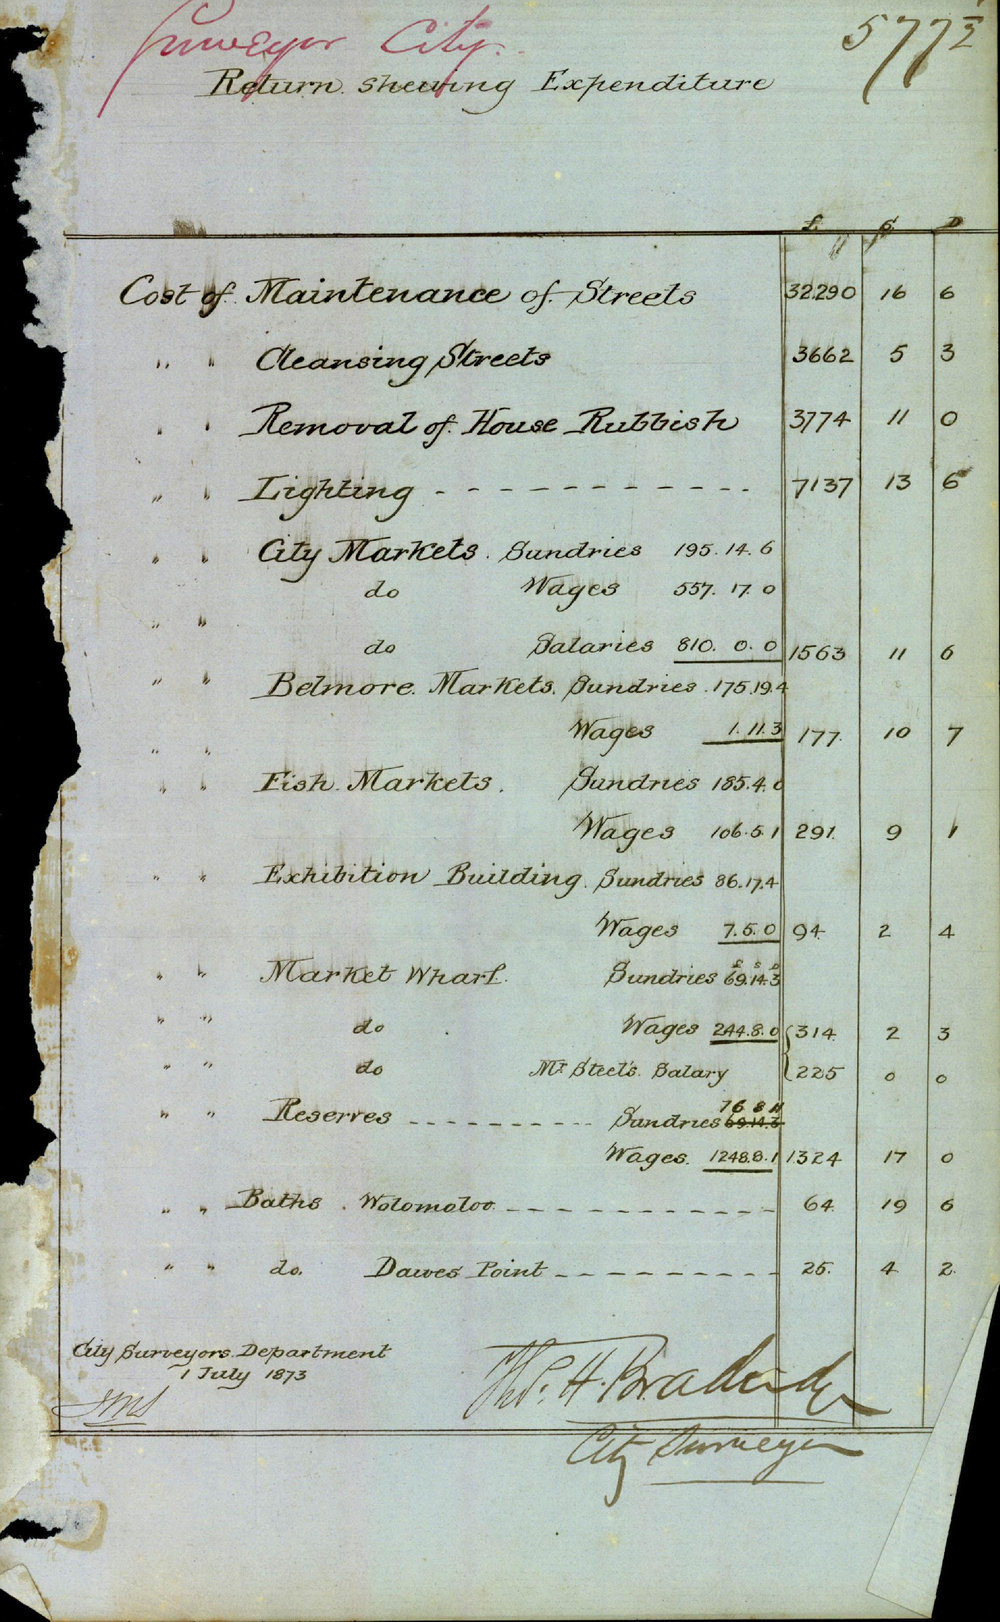 Surveyor City. 577½
Return shewing Expenditure
£ S D
Cost of Maintenance of Streets 32290 16 6
" " Cleansing Streets 3662 5 3
" " Removal of House Rubbish 3774 11 0
" " Lighting - - - - - - - - - - - 7137 13 6
" " City Markets. Sundries 195. 14. 6
do Wages 557. 17. 0
" " do Salaries 810. 0. 0 1563 11 6
" " Belmore. Markets. Sundries. 175.19.4
" " Wages 1. 11. 3 177. 10 7
" " Fish. Markets. Sundries 185.4.0
Wages 106.5.1 291. 9 1
" " Exhibition Building. Sundries 86.17.4
Wages 7.5.0 94 2 4
£ S D
" " Market Wharf. Sundries 69.14.3
" " do Wages 244.8.0 314 2 3
" " do Mr Steel's. Salary 225 0 0
76 8 11
" " Reserves - - - - - - - - - - Sundries 69.14.3
Wages. 1248.8.1 1324 17 0
" " Baths. Wolomoloo - - - - - - - - - - 64 19 6
" " do. Dawes Point - - - - - - - - - 25. 4 2
City Surveyors. Department
1 July 1873
Thos. H. Bradridge
City Surveyor